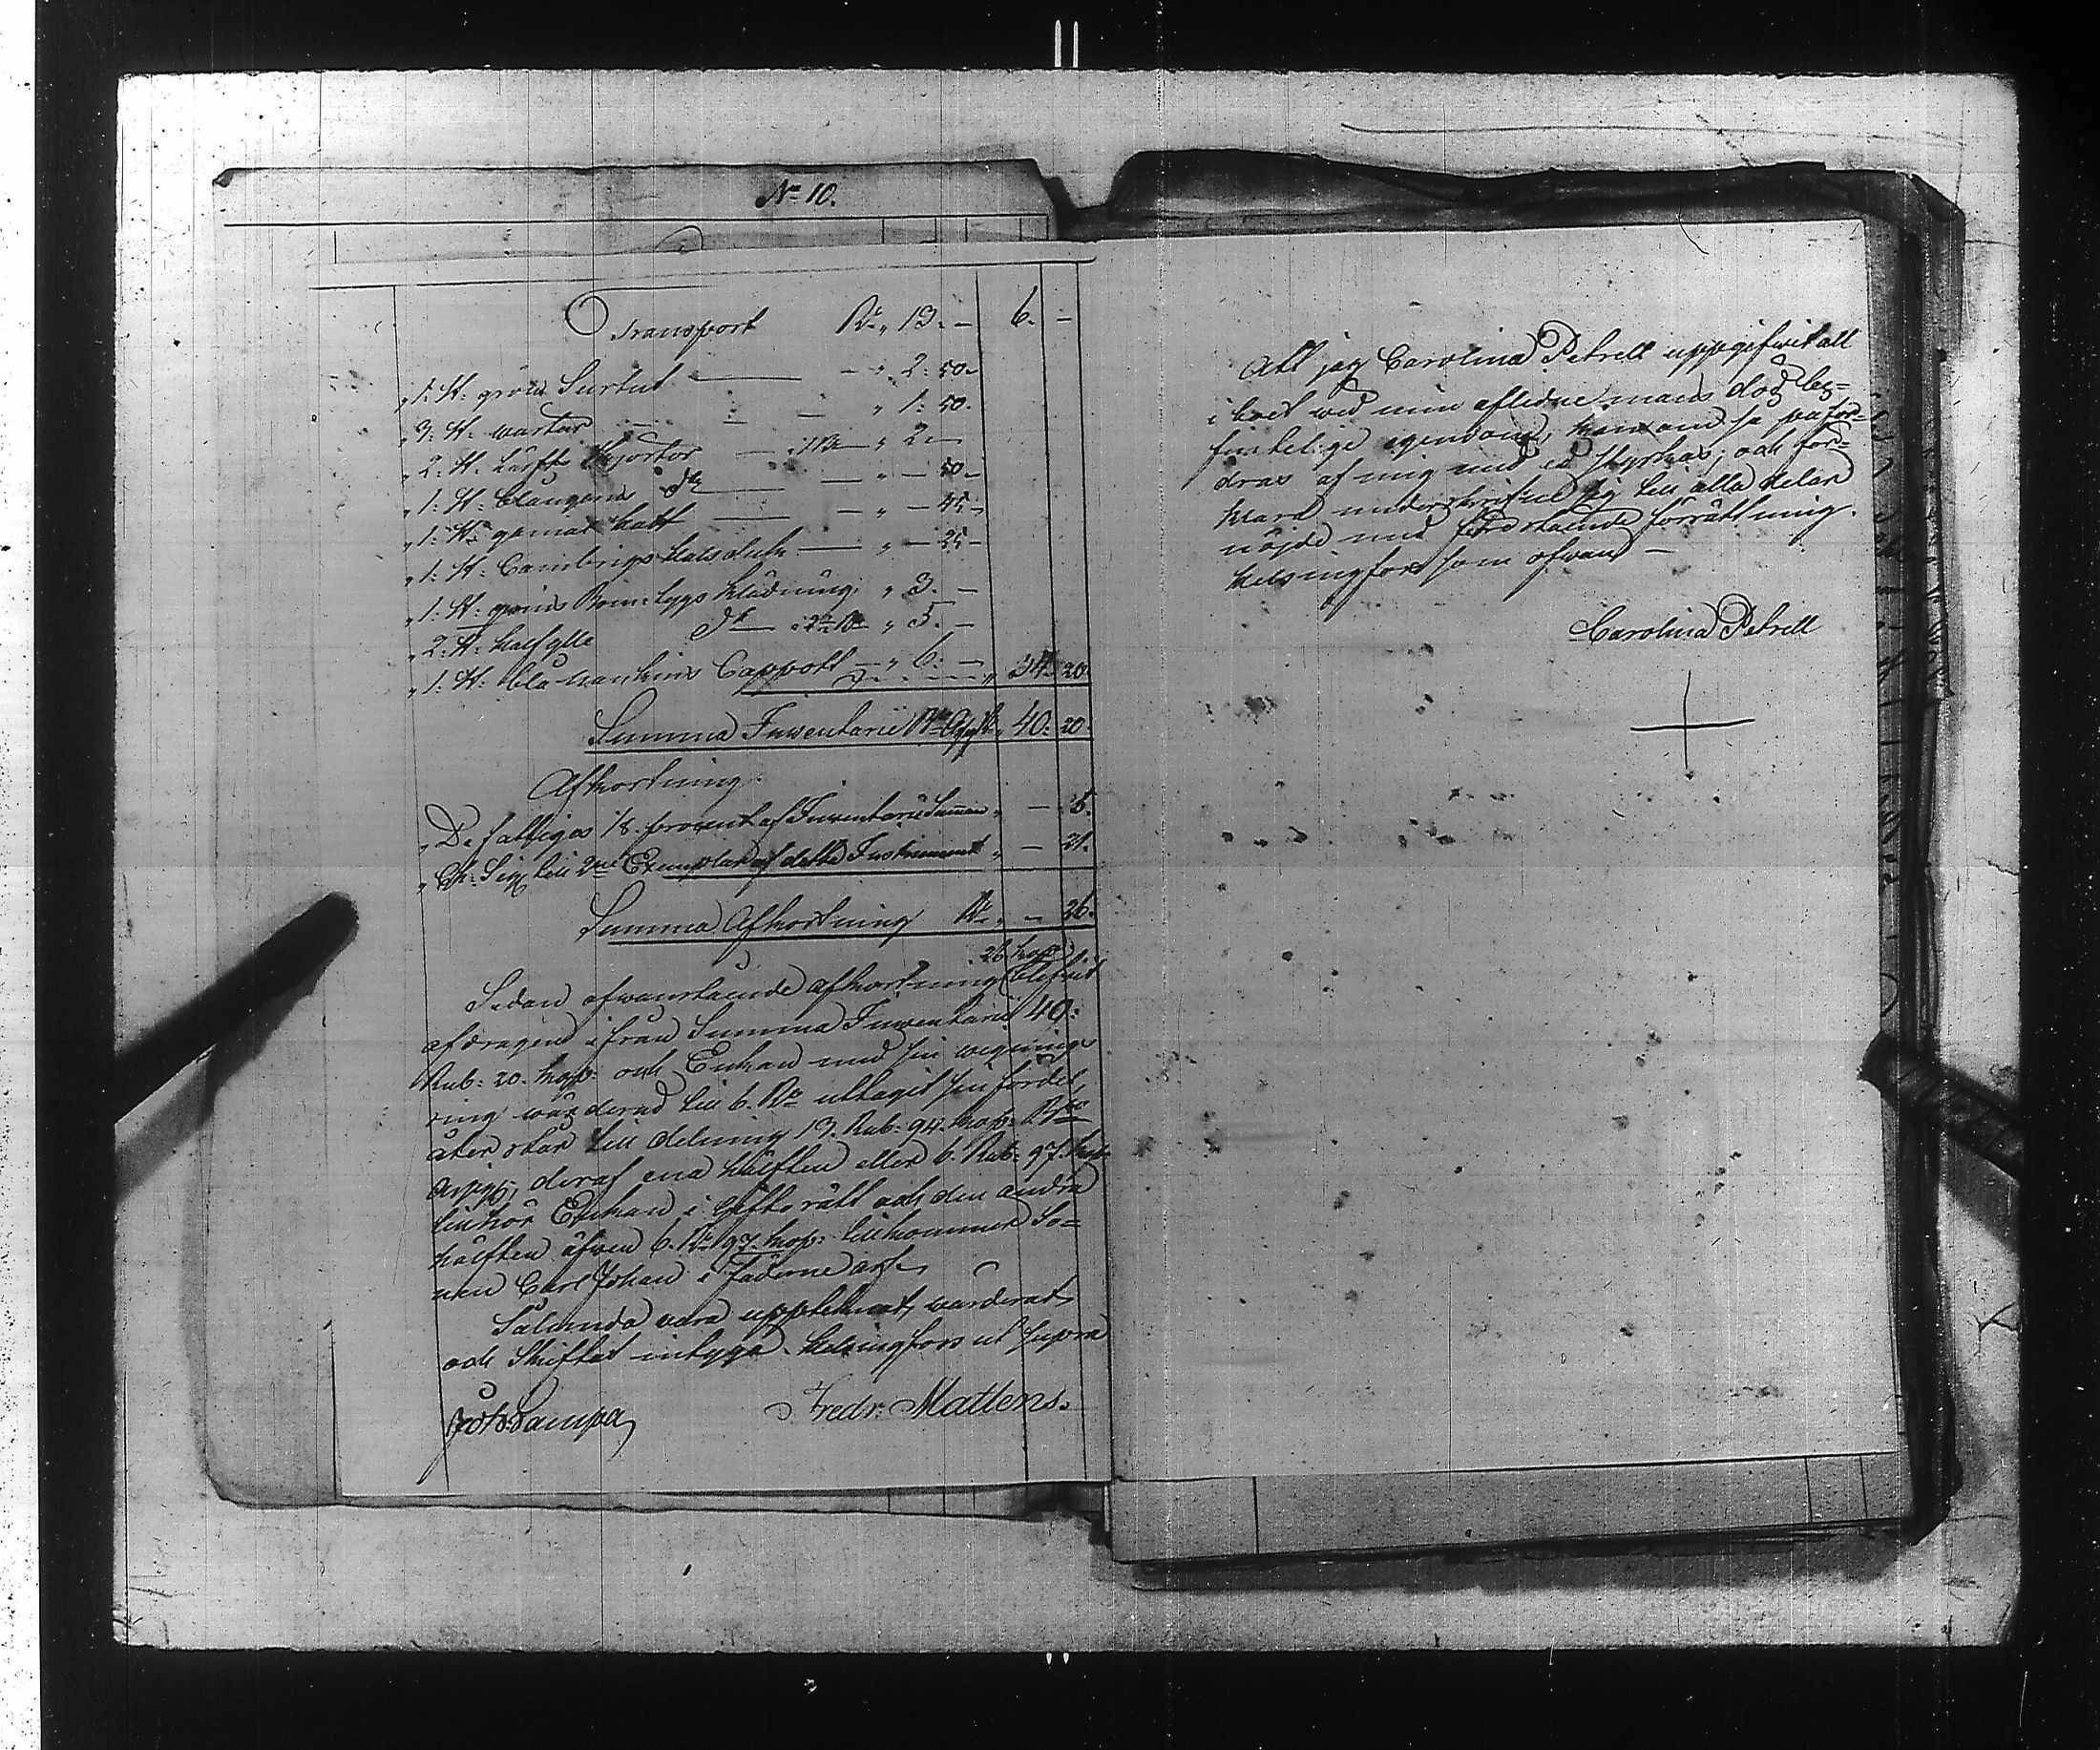 No 10.
Transport Rr „ 13. — 6. —
„ 1. St: gröna Surtut — — „ 2: 50.
„ 3: St: wästar — „ 1: 50.
„ 2: St: lärfts Skjortor — 1 Rr — „ 2. —
„ 1: St: blaugarns do — — „ — 50.
„ 1: St: gamal hatt — — „ — 45.
„ 1: St: Cambrigs halsduk — „ — 25.
„ 1: St: gröns Bom:tygs klädning. „ 3. —
„ 2: St: halfylle do à 2½ Rr „ 5. —
„ 1: St: blå nankins Cappott — „ 6: — 34. 20.
Summa Inventarii Rr 40: 20.
Afkortning.
„ De fattigas 1/8. procent af Inventarii Summan „ — 5.
„ Ch: Sig: till 2ne Exemplar af detta Instrument „ — 21.
Summa Afkortning Rr „ — 26.
26 kop:
Sedan ofwanstående afkortning blifvit
afdragen ifrån Summa Inventarii 40:
Rub: 20. kop: och Enkan med sin wigning
ring wärderad till 6. Rr uttagit sin fördel,
återstår till delning 13. Rub: 94. kop: Rco
deraf ena hälften eller 6. Rub: 97. kop:
tillhör Enkan i Giftorätt och den andra
hälften äfven 6. Rr 97. kop: tillkommer So=
nen Carl Johan i fäderne arf.
Sålunda vara upptecknat, wärderat
och Skiftat intyga. Helsingfors ut supra
Fredr: Mattens.
Att jag Carolina Petrell uppgifwit all
i boet wid min aflidne mans död be=
fintelige egendom, kan om så påfor=
dras af mig med ed styrkas, och för=
klara underskrifne sig till alla delar
nöjde med förestående förrättning.
Helsingfors som ofwan —
Carolina Petrell